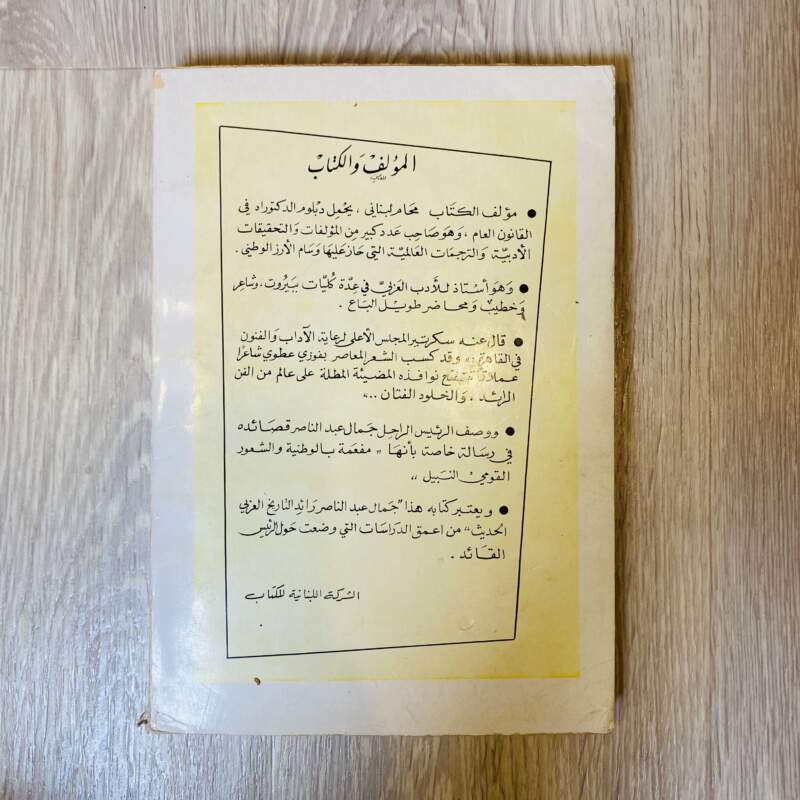 المؤلف والكتاب
● مؤلف الكتاب محام لبناني ، يحمل دبلوم الدكتوراه في
القانون العام ، وهو صاحب عدد كبير من المؤلفات والتحقيقات
الأدبية والترجمات العالمية التي حاز عليها وسام الأرز الوطني .
● وهو أستاذ للأدب العربي في عدة كليات ببيروت ، وشاعر
وخطيب ومحاضر طويل الباع .
● قال عنه سكرتير المجلس الأعلى لرعاية الآداب والفنون
في القاهرة : « وقد كسب الشعر المعاصر بفوزي عطوي شاعرا
عملاقا تتفتح نوافذه المضيئة المطلة على عالم من الفن
الرائد ، والخلود الفتان .. »
● ووصف الرئيس الراحل جمال عبد الناصر قصائده
في رسالة خاصة بأنها « مفعمة بالوطنية والشعور
القومي النبيل »
● ويعتبر كتابه هذا "جمال عبد الناصر رائد التاريخ العربي
الحديث" من اعمق الدراسات التي وضعت حول الرئيس
القائد .
الشركة اللبنانية للكتاب